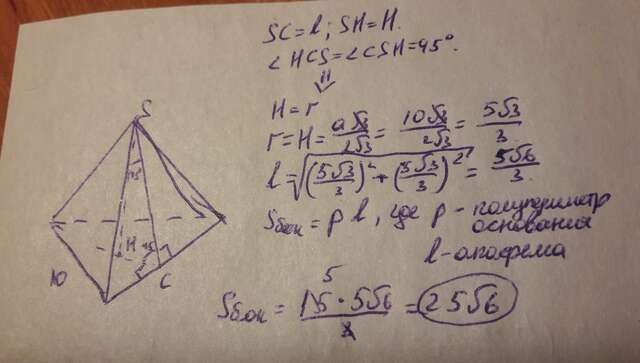 SC = l ; SH = H.
∠HCS = ∠CSH = 45°.
⇓
H = r
r = H = a√3/2√3 = 10√3/2√3 = 5√3/3
l = √((5√3/3)² + (5√3/3)²) = 5√6/3.
Sбок = p l, где p - полупериметр
основания
l - апофема
Sбок = 15 · 5√6/3 = 25√6
5
S
45
H
45
10
C